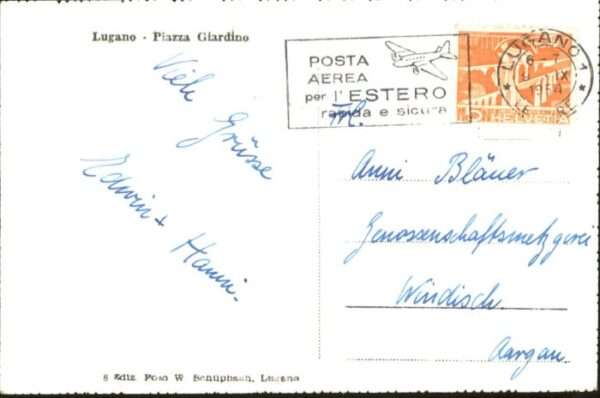 Lugano - Piazza Giardino
POSTA
AEREA
per l'ESTERO
rapida e sicura
LUGANO 1
IX
HELVETIA
Viele Grüsse
Edwin + Hanni.
Frl.
Anni Bläuer
Genossenschaftsmetzgerei
Windisch
Aargau.
Ediz. Foto W Schüpbach, Lugano